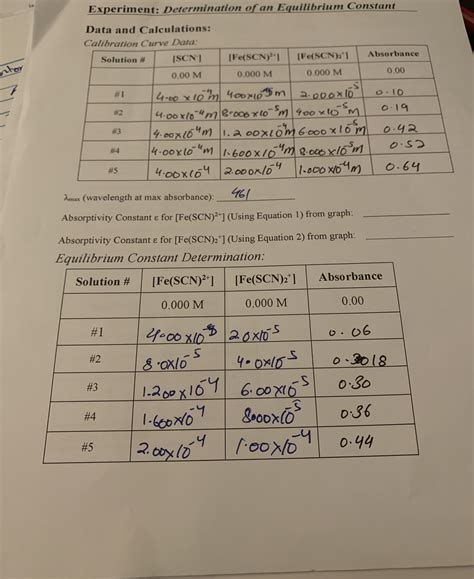 Experiment: Determination of an Equilibrium Constant
Data and Calculations:
Calibration Curve Data:
Solution # [SCN⁻] [Fe(SCN)²⁺] [Fe(SCN)₂⁺] Absorbance
0.00 M 0.000 M 0.000 M 0.00
#1 4.00 x 10⁻⁴m 400x10⁻⁵m 2.000x10⁻⁵ 0.10
#2 4.00x10⁻⁴m 8.000x10⁻⁵m 400x10⁻⁵m 0.19
#3 4.00x10⁻⁴m 1.200x10⁻⁴m 6.000x10⁻⁵m 0.42
#4 4.00x10⁻⁴m 1.600x10⁻⁴m 8.000x10⁻⁵m 0.52
#5 4.00x10⁻⁴ 2.000x10⁻⁴ 1.000x10⁻⁴m 0.64
λmax (wavelength at max absorbance): 461
Absorptivity Constant ε for [Fe(SCN)²⁺] (Using Equation 1) from graph:
Absorptivity Constant ε for [Fe(SCN)₂⁺] (Using Equation 2) from graph:
Equilibrium Constant Determination:
Solution # [Fe(SCN)²⁺] [Fe(SCN)₂⁺] Absorbance
0.000 M 0.000 M 0.00
#1 4.00x10⁻⁵ 2.0x10⁻⁵ 0.06
#2 8.0x10⁻⁵ 4.0x10⁻⁵
#3 1.200x10⁻⁴ 6.00x10⁻⁵ 0.30
#4 1.600x10⁻⁴ 8.000x10⁻⁵ 0.36
#5 2.00x10⁻⁴ 1.00x10⁻⁴ 0.44